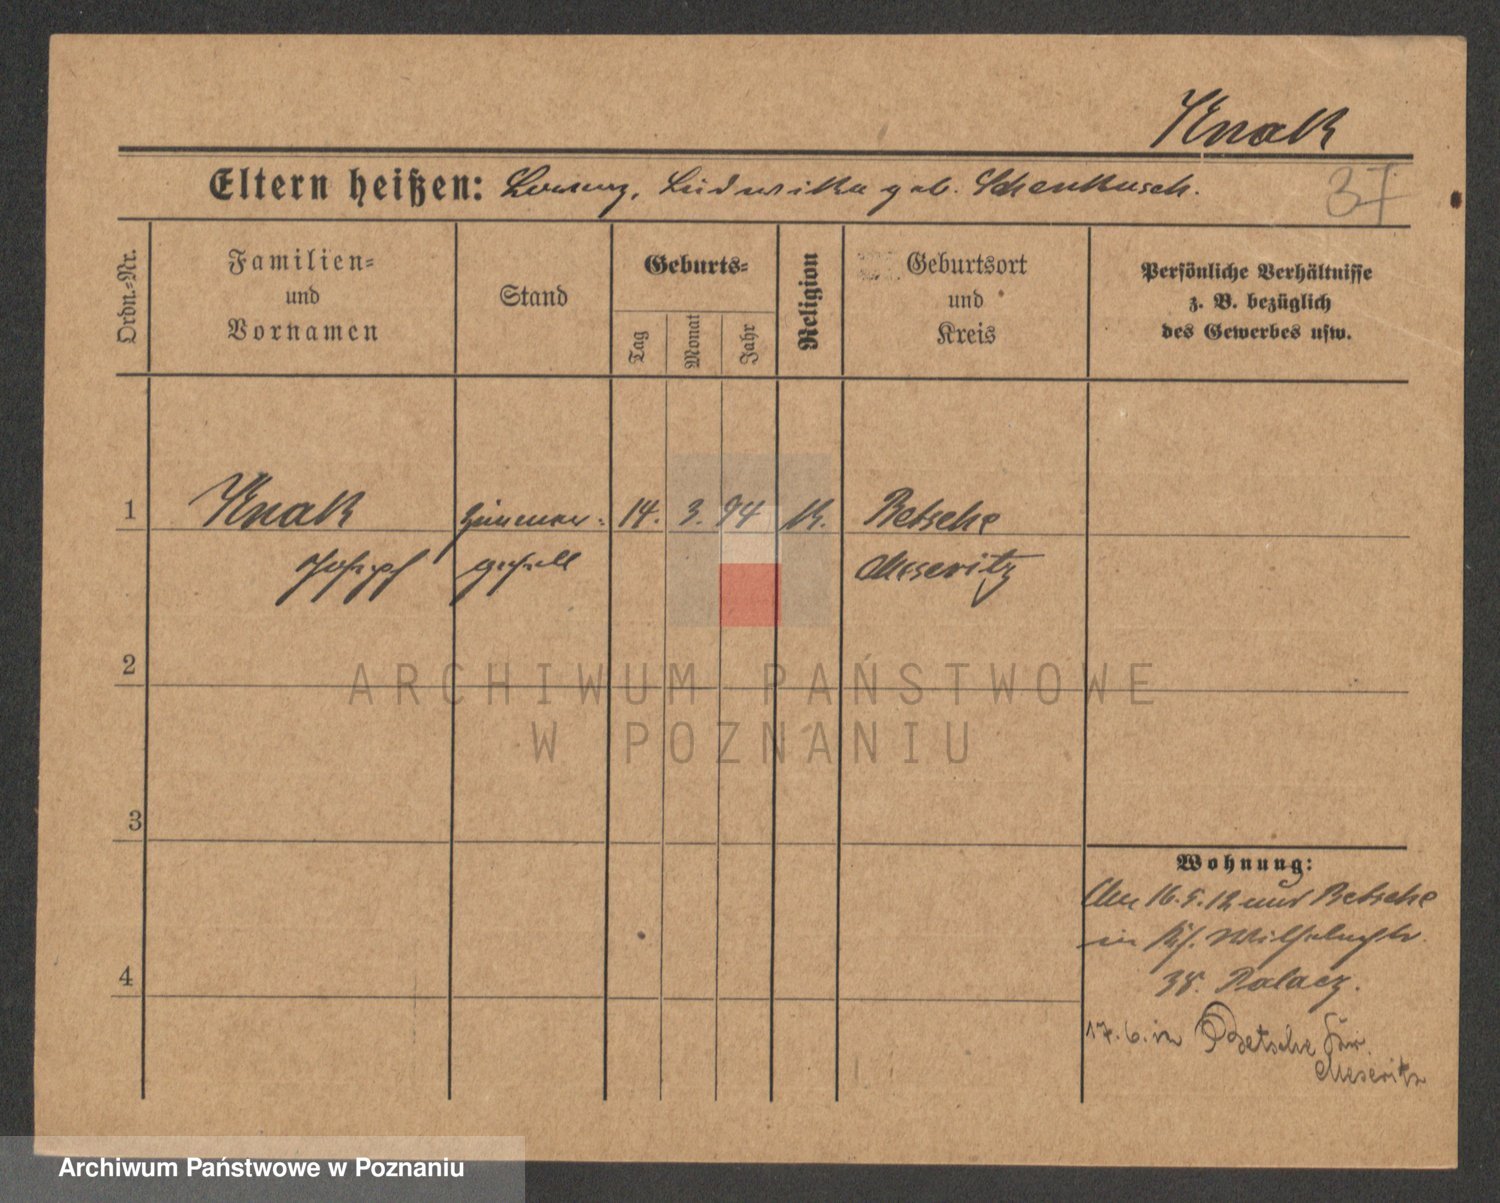 Knak
Eltern heißen: Lorenz, Ludwika geb. Schenkusch.
37
Ordn.-Nr.
Familien-
und
Vornamen
Stand
Geburts-
Tag
Monat
Jahr
Religion
Geburtsort
und
Kreis
Persönliche Verhältnisse
z. B. bezüglich
des Gewerbes usw.
1
Knak
Zimmer-
14. 3. 94
K.
Betsche
Joseph
gesell
Meseritz
2
ARCHIWUM PAŃSTWOWE
W POZNANIU
3
Wohnung:
16.5.12 Betsche
in
38. Palacz.
4
17. 6. in Betsche
Meseritz
Archiwum Państwowe w Poznaniu